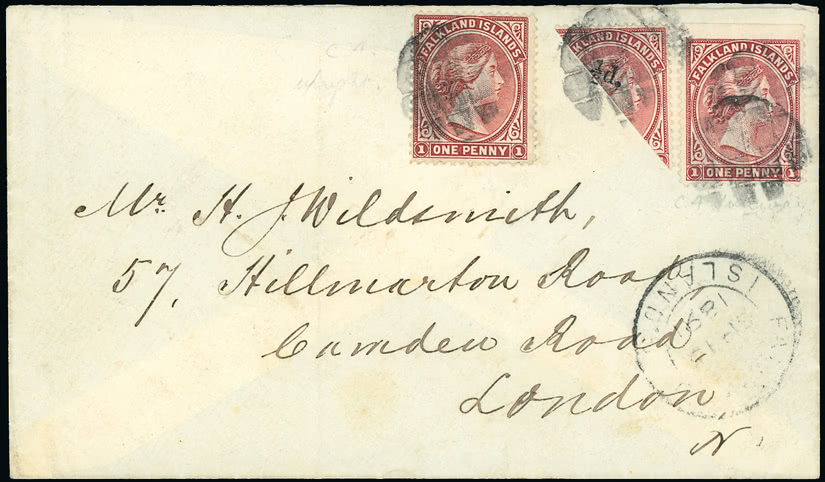 FALKLAND ISLANDS
1 ONE PENNY 1
KLAND ISLANDS
½d.
FALKLAND ISLANDS
1 ONE PENNY 1
Mr. H. J. Wildsmith,
57, Hillmarton Road
Camden Road
London
N.